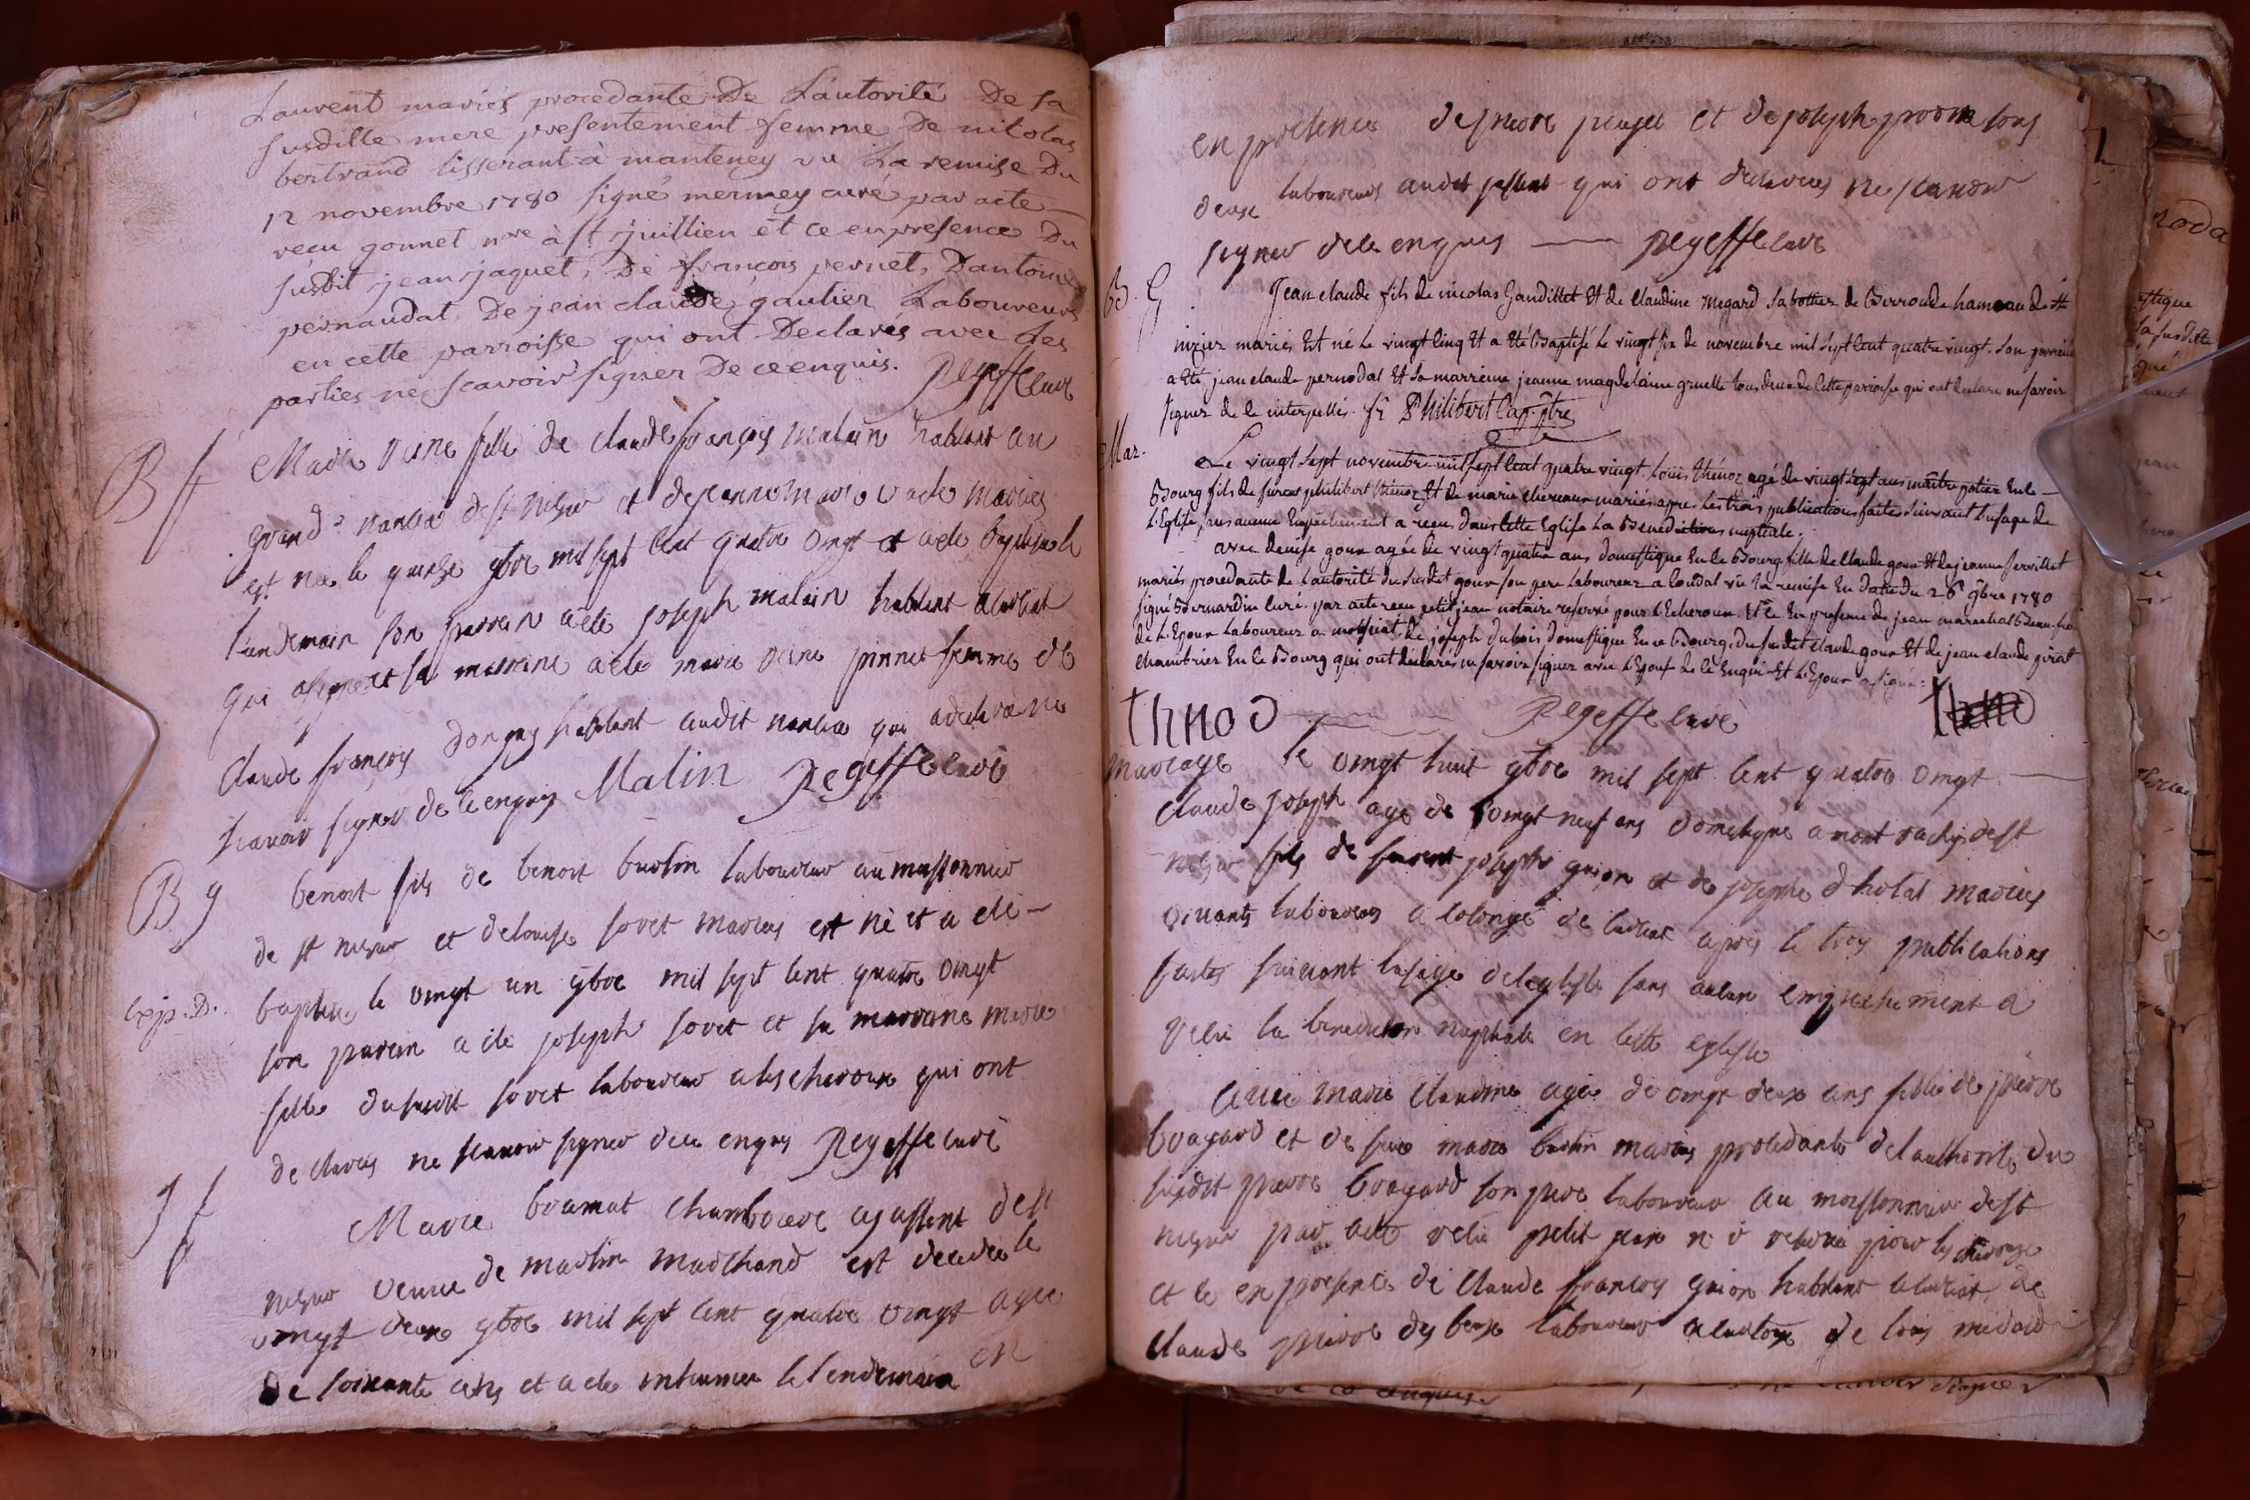 Laurent mariés procedante De L'autorité De sa
susditte mere presentement femme De nicolas
bertrand tisserant à manteney vu La remise Du
12 novembre 1780 signé mermey curé par acte
recu gonnet nre à st juillien et ce en presence Du
susdit jean jaquet, De françois pernet, D'antoine
pernaudat De jean claude gautier Laboureurs
en cette parroisse qui ont Declarés avec les
parties ne scavoir signer De ce enquis. Pegeffe curé
B f Marie fille de claude françois malin habitant au
grand nancia de st nizier et de jeanne marie mariés
est née le quinze 9bre mil sept cent quatre vingt et a ete baptisée le
lendemain son parrein a ete joseph malin habitant a curciat
qui a signé et sa marraine a ete marie pernet femme de
claude françois habitant audit nancia qui a declaré ne
scavoir signer de ce enquis Malin Pegeffe curé
B g benoit fils de benoit burtin laboureur au moissonnier
de st nizier et de louise soret mariés est né et a eté
Exp. D. baptisé le vingt un 9bre mil sept cent quatre vingt
son parein a ete joseph soret et sa marraine marie
fille du susdit soret laboureur a leschiroux qui ont
declarés ne scavoir signer de ce enquis Pegeffe curé
f Marie bramat chambriere de st
nizier veuve de martin marchand est decedée le
vingt deux 9bre mil sept cent quatre vingt agée
de soixante ans et a ete inhumée le lendemain en
en presence de pierre et de joseph tous
deux laboureurs audit qui ont declarés ne scavoir
signer de ce enquis Pegeffe curé
B. G Jean claude fils de nicolas Gaudillet Et de claudine megard sabottier de hameau de st
nizier mariés Est né Le vingt cinq Et a Eté Baptisé Le vingt six de novembre mil sept cent quatre vingt. son parrein
a Eté jean claude pernodat Et sa marreine jeanne magdelaine gruelle tous deux de cette paroisse qui ont declaré ne savoir
signer de ce interpellés. fr Philibert Cap. ptre
Mar. Le vingt sept novembre mil sept cent quatre vingt Louis thenoz agé de vingt sept ans maitre potier En ce
Bourg fils de furent philibert thenoz Et de marie mariés apres Les trois publications faites suivant L'usage de
L'Eglise, sans aucun Empechement a recu dans cette Eglise La Benediction nuptiale.
avec denise goux agée de vingt quatre ans domestique En ce Bourg fille de claude goux Et de jeanne servillet
mariés procedante de L'autorité du susdit goux son pere Laboureur a condat vu La remise En date du 26 9bre 1780
signé Bernardin curé. par acte recu petit jean notaire reservé pour L'Echeroux. Et ce En presence de jean marechal Beau frere
de L'Epoux Laboureur a de joseph dubois domestique En ce Bourg, du susdit claude goux Et de jean claude
chambrier En ce Bourg qui ont declarés ne savoir signer avec L'Epouse de ce Enquis Et L'Epoux a signé:
Thnod Pegeffe curé
mariage le vingt huit 9bre mil sept cent quatre vingt
claude joseph agé de vingt neuf ans domestique a mont de st
nizier fils de furent joseph guion et de mariés
vivants laboureurs a colonge de curciat apres le trois publications
faites suivant l'usage de l'eglise sans aucun empechement a
recu la benediction nuptiale en cette eglise
avec marie claudine agée de vingt deux ans fille de pierre
boyard et de feue marie burtin mariés procedante de l'authorité du
susdit pierre boyard son pere laboureur au moissonnier de st
nizier par acte recu petit jean n r reservé pour leschiroux
et ce en presence de claude françois guion habitant a curciat, de
claude pierre laboureur de louis